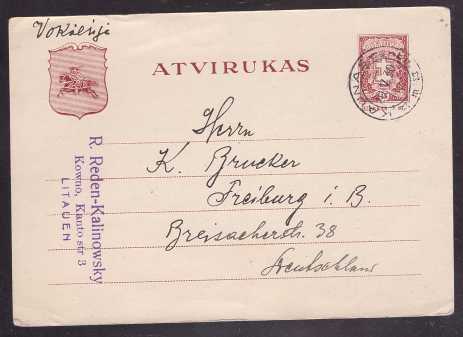 Vokietija
ATVIRUKAS
KAUNAS
Herrn
K. Brucker
Freiburg i. B.
Breisacherstr. 38
Deutschland
R. Reden-Kalinowsky
Kowno, Kanto str 3
LITAUEN